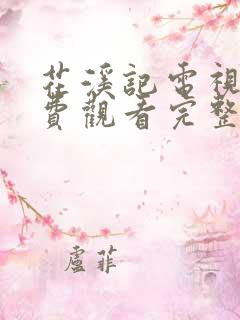 茳溪記電視
費觀看完整
盧菲